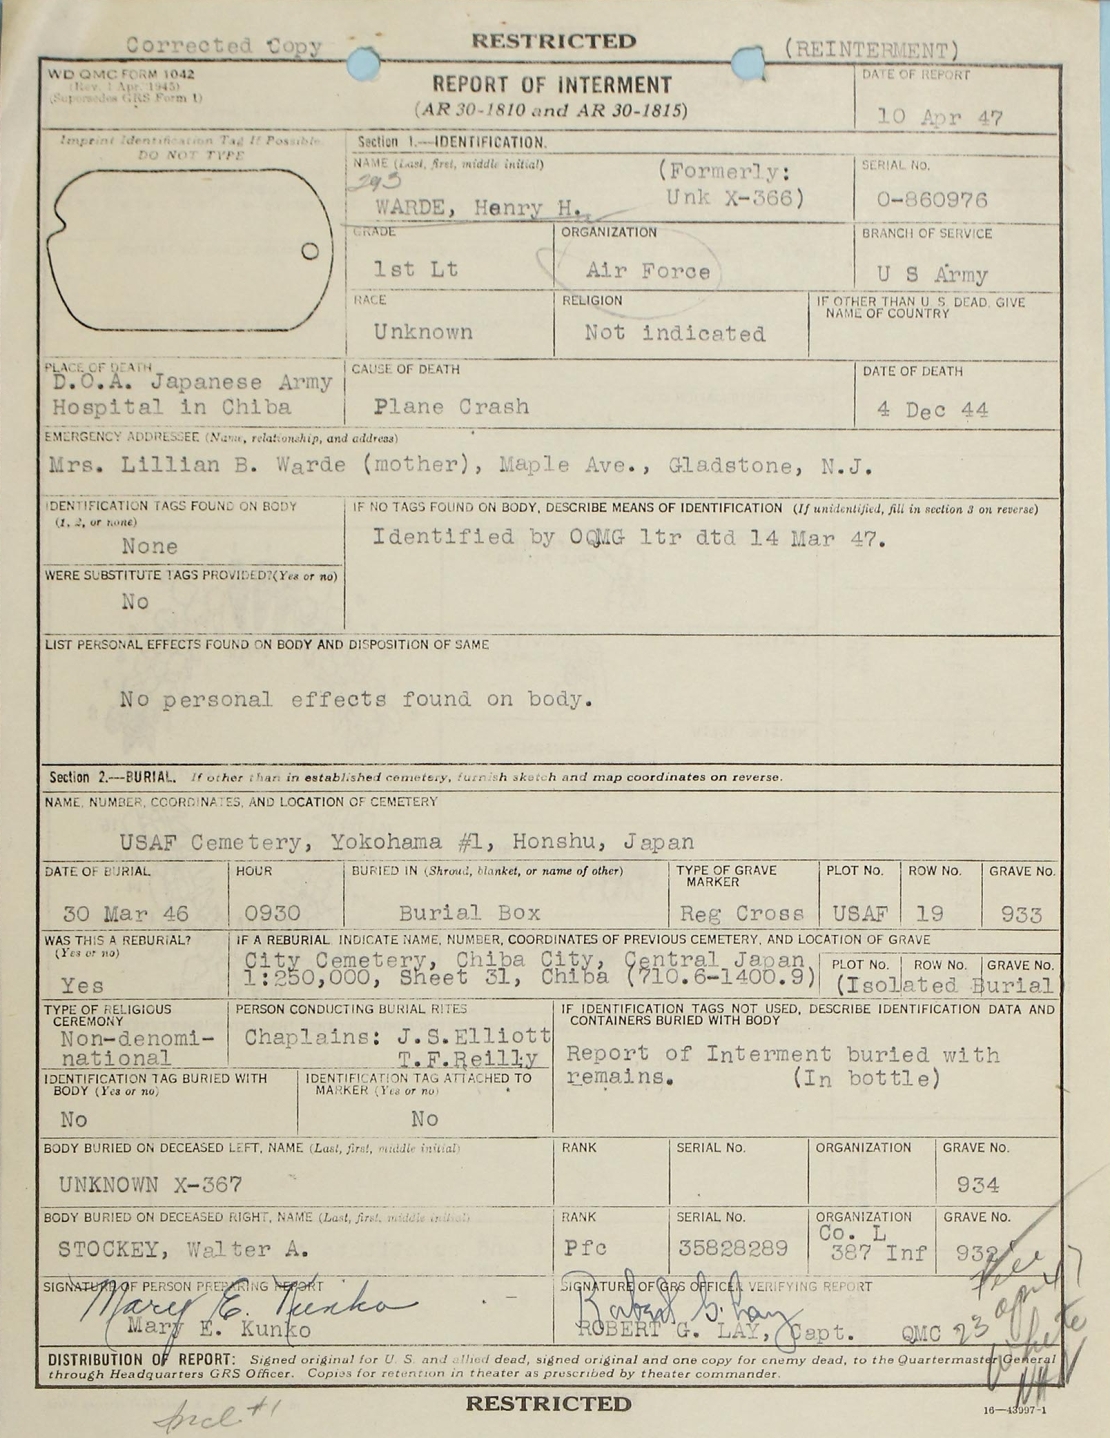 Corrected Copy RESTRICTED (REINTERMENT)
WD QMC FORM 1042
(Rev. 1 Apr. 1945)
(Supersedes GRS Form 1)
REPORT OF INTERMENT
(AR 30-1810 and AR 30-1815)
DATE OF REPORT
10 Apr 47
Imprint Identification Tag If Possible
DO NOT TYPE
Section 1.—IDENTIFICATION.
NAME (Last, first, middle initial)
293
WARDE, Henry H.
(Formerly:
Unk X-366)
SERIAL NO.
O-860976
GRADE
1st Lt
ORGANIZATION
Air Force
BRANCH OF SERVICE
U S Army
RACE
Unknown
RELIGION
Not indicated
IF OTHER THAN U. S. DEAD, GIVE
NAME OF COUNTRY
PLACE OF DEATH
D.O.A. Japanese Army
Hospital in Chiba
CAUSE OF DEATH
Plane Crash
DATE OF DEATH
4 Dec 44
EMERGENCY ADDRESSEE (Name, relationship, and address)
Mrs. Lillian B. Warde (mother), Maple Ave., Gladstone, N.J.
IDENTIFICATION TAGS FOUND ON BODY
(1, 2, or none)
None
WERE SUBSTITUTE TAGS PROVIDED? (Yes or no)
No
IF NO TAGS FOUND ON BODY, DESCRIBE MEANS OF IDENTIFICATION (If unidentified, fill in section 3 on reverse)
Identified by OQMG ltr dtd 14 Mar 47.
LIST PERSONAL EFFECTS FOUND ON BODY AND DISPOSITION OF SAME
No personal effects found on body.
Section 2.—BURIAL. If other than in established cemetery, furnish sketch and map coordinates on reverse.
NAME, NUMBER, COORDINATES, AND LOCATION OF CEMETERY
USAF Cemetery, Yokohama #1, Honshu, Japan
DATE OF BURIAL
30 Mar 46
HOUR
0930
BURIED IN (Shroud, blanket, or name of other)
Burial Box
TYPE OF GRAVE
MARKER
Reg Cross
PLOT No.
USAF
ROW No.
19
GRAVE No.
933
WAS THIS A REBURIAL?
(Yes or no)
Yes
IF A REBURIAL INDICATE NAME, NUMBER, COORDINATES OF PREVIOUS CEMETERY, AND LOCATION OF GRAVE
City Cemetery, Chiba City, Central Japan
1:250,000, Sheet 31, Chiba (710.6-1400.9)
PLOT No. ROW No. GRAVE No.
(Isolated Burial
TYPE OF RELIGIOUS
CEREMONY
Non-denomi-
national
PERSON CONDUCTING BURIAL RITES
Chaplains: J.S.Elliott
T.F.Reilly
IF IDENTIFICATION TAGS NOT USED, DESCRIBE IDENTIFICATION DATA AND
CONTAINERS BURIED WITH BODY
Report of Interment buried with
remains. (In bottle)
IDENTIFICATION TAG BURIED WITH
BODY (Yes or no)
No
IDENTIFICATION TAG ATTACHED TO
MARKER (Yes or no)
No
BODY BURIED ON DECEASED LEFT, NAME (Last, first, middle initial)
UNKNOWN X-367
RANK
SERIAL No.
ORGANIZATION
GRAVE No.
934
BODY BURIED ON DECEASED RIGHT, NAME (Last, first, middle initial)
STOCKEY, Walter A.
RANK
Pfc
SERIAL No.
35828289
ORGANIZATION
Co. L
387 Inf
GRAVE No.
932
SIGNATURE OF PERSON PREPARING REPORT
Mary E. Kunko
Mary E. Kunko
SIGNATURE OF GRS OFFICER VERIFYING REPORT
Robert G. Lay
ROBERT G. LAY, Capt. QMC
23
DISTRIBUTION OF REPORT: Signed original for U. S. and allied dead, signed original and one copy for enemy dead, to the Quartermaster General
through Headquarters GRS Officer. Copies for retention in theater as prescribed by theater commander.
Incl #1
RESTRICTED
16—43997-1